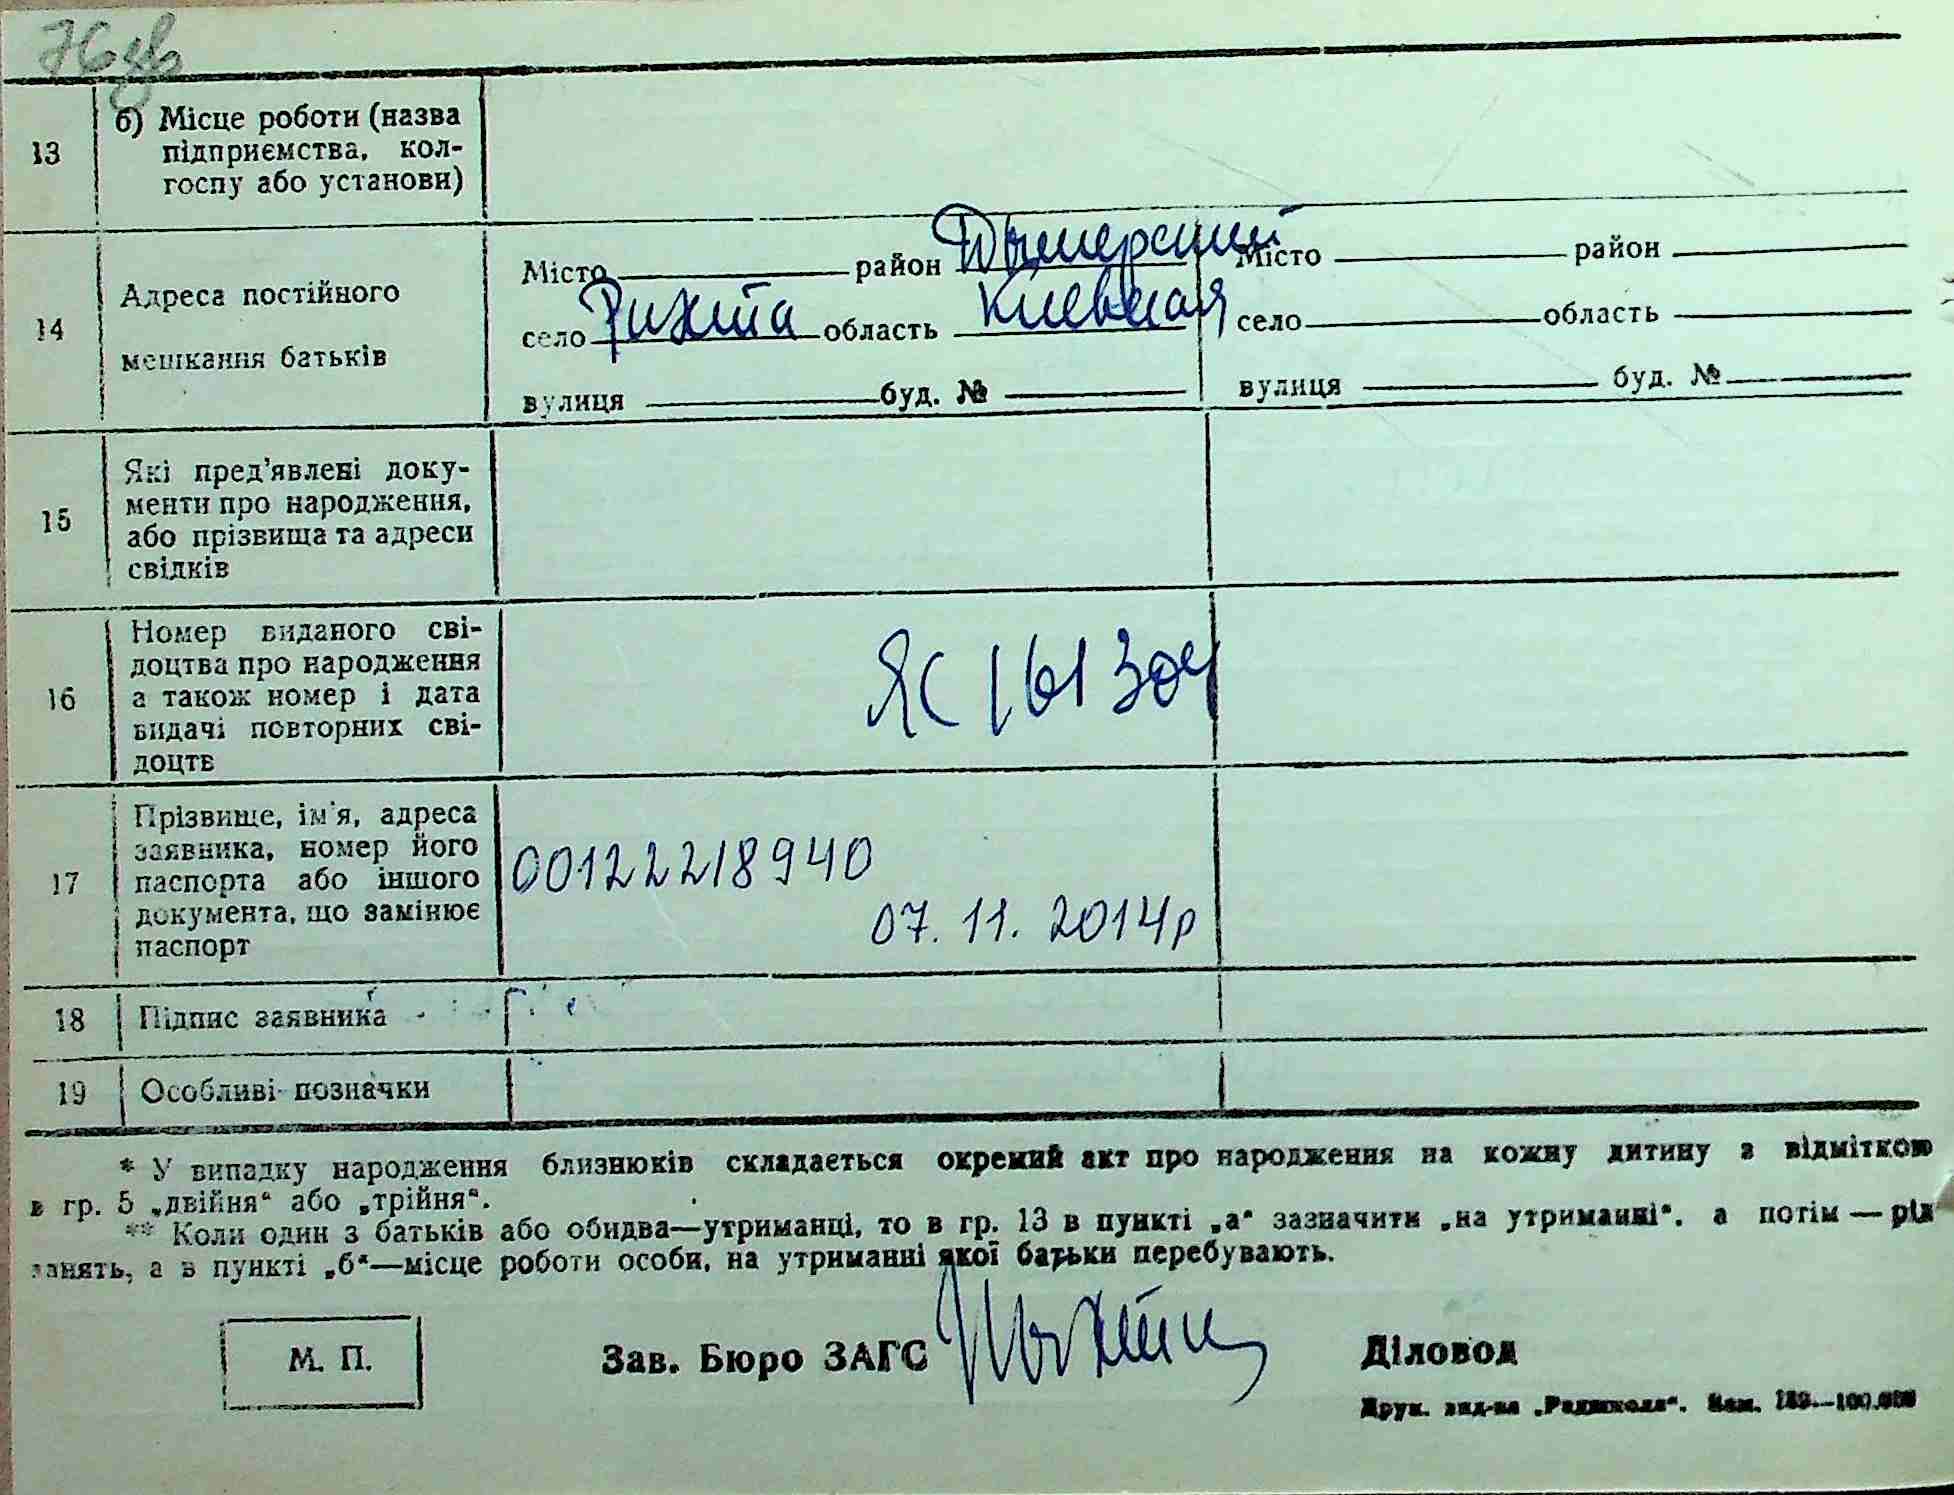 76зв
13
б) Місце роботи (назва
підприємства, кол-
госпу або установи)
14
Адреса постійного
мешкання батьків
Місто район Дымерский
село Рихта область Киевская
вулиця буд. №
Місто район
село область
вулиця буд. №
15
Які пред'явлені доку-
менти про народження,
або прізвища та адреси
свідків
16
Номер виданого сві-
доцтва про народження
а також номер і дата
видачі повторних сві-
доцтв
ЯС 161304
17
Прізвище, ім'я, адреса
заявника, номер його
паспорта або іншого
документа, що замінює
паспорт
00122218940
07. 11. 2014р
18
Підпис заявника
19
Особливі позначки
* У випадку народження близнюків складається окремий акт про народження на кожну дитину з відміткою
в гр. 5 „двійня“ або „трійня“.
** Коли один з батьків або обидва—утриманці, то в гр. 13 в пункті „а“ зазначити „на утриманні“, а потім — рід
занять, а в пункті „б“—місце роботи особи, на утриманні якої батьки перебувають.
М. П.
Зав. Бюро ЗАГС
Діловод
Друк. вид-ва „Радшкола“. Зам. 189.—100.000